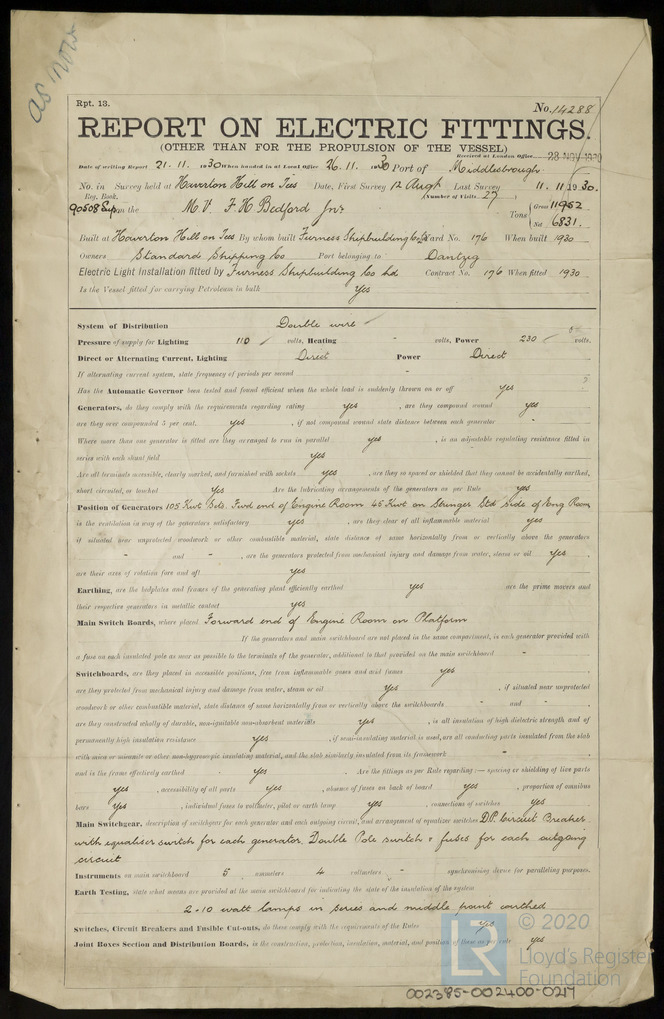 as now
Rpt. 13.
No. 14288
REPORT ON ELECTRIC FITTINGS.
(OTHER THAN FOR THE PROPULSION OF THE VESSEL)
Received at London Office 28 NOV 1930
Date of writing Report 21. 11. 1930 When handed in at Local Office 26. 11. 1930 Port of Middlesbrough
No. in Survey held at Haverton Hill on Tees Date, First Survey 12 Augt Last Survey 11. 11. 1930.
Reg. Book. (Number of Visits 27)
90508 Sup on the M.V. F. H. Bedford Jnr Tons Gross 11952
Net 6831.
Built at Haverton Hill on Tees By whom built Furness Shipbuilding Co Ld Yard No. 176 When built 1930
Owners Standard Shipping Co Port belonging to Dantzig
Electric Light Installation fitted by Furness Shipbuilding Co Ld Contract No. 176 When fitted 1930
Is the Vessel fitted for carrying Petroleum in bulk Yes
System of Distribution Double wire
Pressure of supply for Lighting 110 volts, Heating - volts, Power 230 volts.
Direct or Alternating Current, Lighting Direct Power Direct
If alternating current system, state frequency of periods per second -
Has the Automatic Governor been tested and found efficient when the whole load is suddenly thrown on or off yes
Generators, do they comply with the requirements regarding rating yes , are they compound wound yes
are they over compounded 5 per cent. yes , if not compound wound state distance between each generator -
Where more than one generator is fitted are they arranged to run in parallel yes , is an adjustable regulating resistance fitted in
series with each shunt field yes
Are all terminals accessible, clearly marked, and furnished with sockets yes , are they so spaced or shielded that they cannot be accidentally earthed,
short circuited, or touched yes Are the lubricating arrangements of the generators as per Rule yes
Position of Generators 105 Kwt Sets. Fwd end of Engine Room 45 Kwt on Stringer Stbd side of Eng Room
is the ventilation in way of the generators satisfactory yes , are they clear of all inflammable material yes
if situated near unprotected woodwork or other combustible material, state distance of same horizontally from or vertically above the generators
- and - , are the generators protected from mechanical injury and damage from water, steam or oil yes
are their axes of rotation fore and aft yes
Earthing, are the bedplates and frames of the generating plant efficiently earthed yes are the prime movers and
their respective generators in metallic contact yes
Main Switch Boards, where placed Forward end of Engine Room on Platform
If the generators and main switchboard are not placed in the same compartment, is each generator provided with
a fuse on each insulated pole as near as possible to the terminals of the generator, additional to that provided on the main switchboard -
Switchboards, are they placed in accessible positions, free from inflammable gases and acid fumes yes
are they protected from mechanical injury and damage from water, steam or oil yes , if situated near unprotected
woodwork or other combustible material, state distance of same horizontally from or vertically above the switchboards - and -
are they constructed wholly of durable, non-ignitable non-absorbent materials yes , is all insulation of high dielectric strength and of
permanently high insulation resistance yes , if semi-insulating material is used, are all conducting parts insulated from the slab
with mica or micanite or other non-hygroscopic insulating material, and the slab similarly insulated from its framework -
and is the frame effectively earthed yes . Are the fittings as per Rule regarding:— spacing or shielding of live parts
yes , accessibility of all parts yes , absence of fuses on back of board yes , proportion of omnibus
bars yes , individual fuses to voltmeter, pilot or earth lamp yes , connections of switches yes
Main Switchgear, description of switchgear for each generator and each outgoing circuit, and arrangement of equaliser switches D.P. Circuit Breaker
with equaliser switch for each generator. Double Pole switch & fuses for each outgoing
circuit
Instruments on main switchboard 5 ammeters 4 voltmeters - synchronising device for paralleling purposes.
Earth Testing, state what means are provided at the main switchboard for indicating the state of the insulation of the system
2-10 watt lamps in series and middle point earthed
Switches, Circuit Breakers and Fusible Cut-outs, do these comply with the requirements of the Rules yes
Joint Boxes Section and Distribution Boards, is the construction, protection, insulation, material, and position of these as per rule yes
LR
© 2020
Lloyd's Register
Foundation
002385-002400-0217